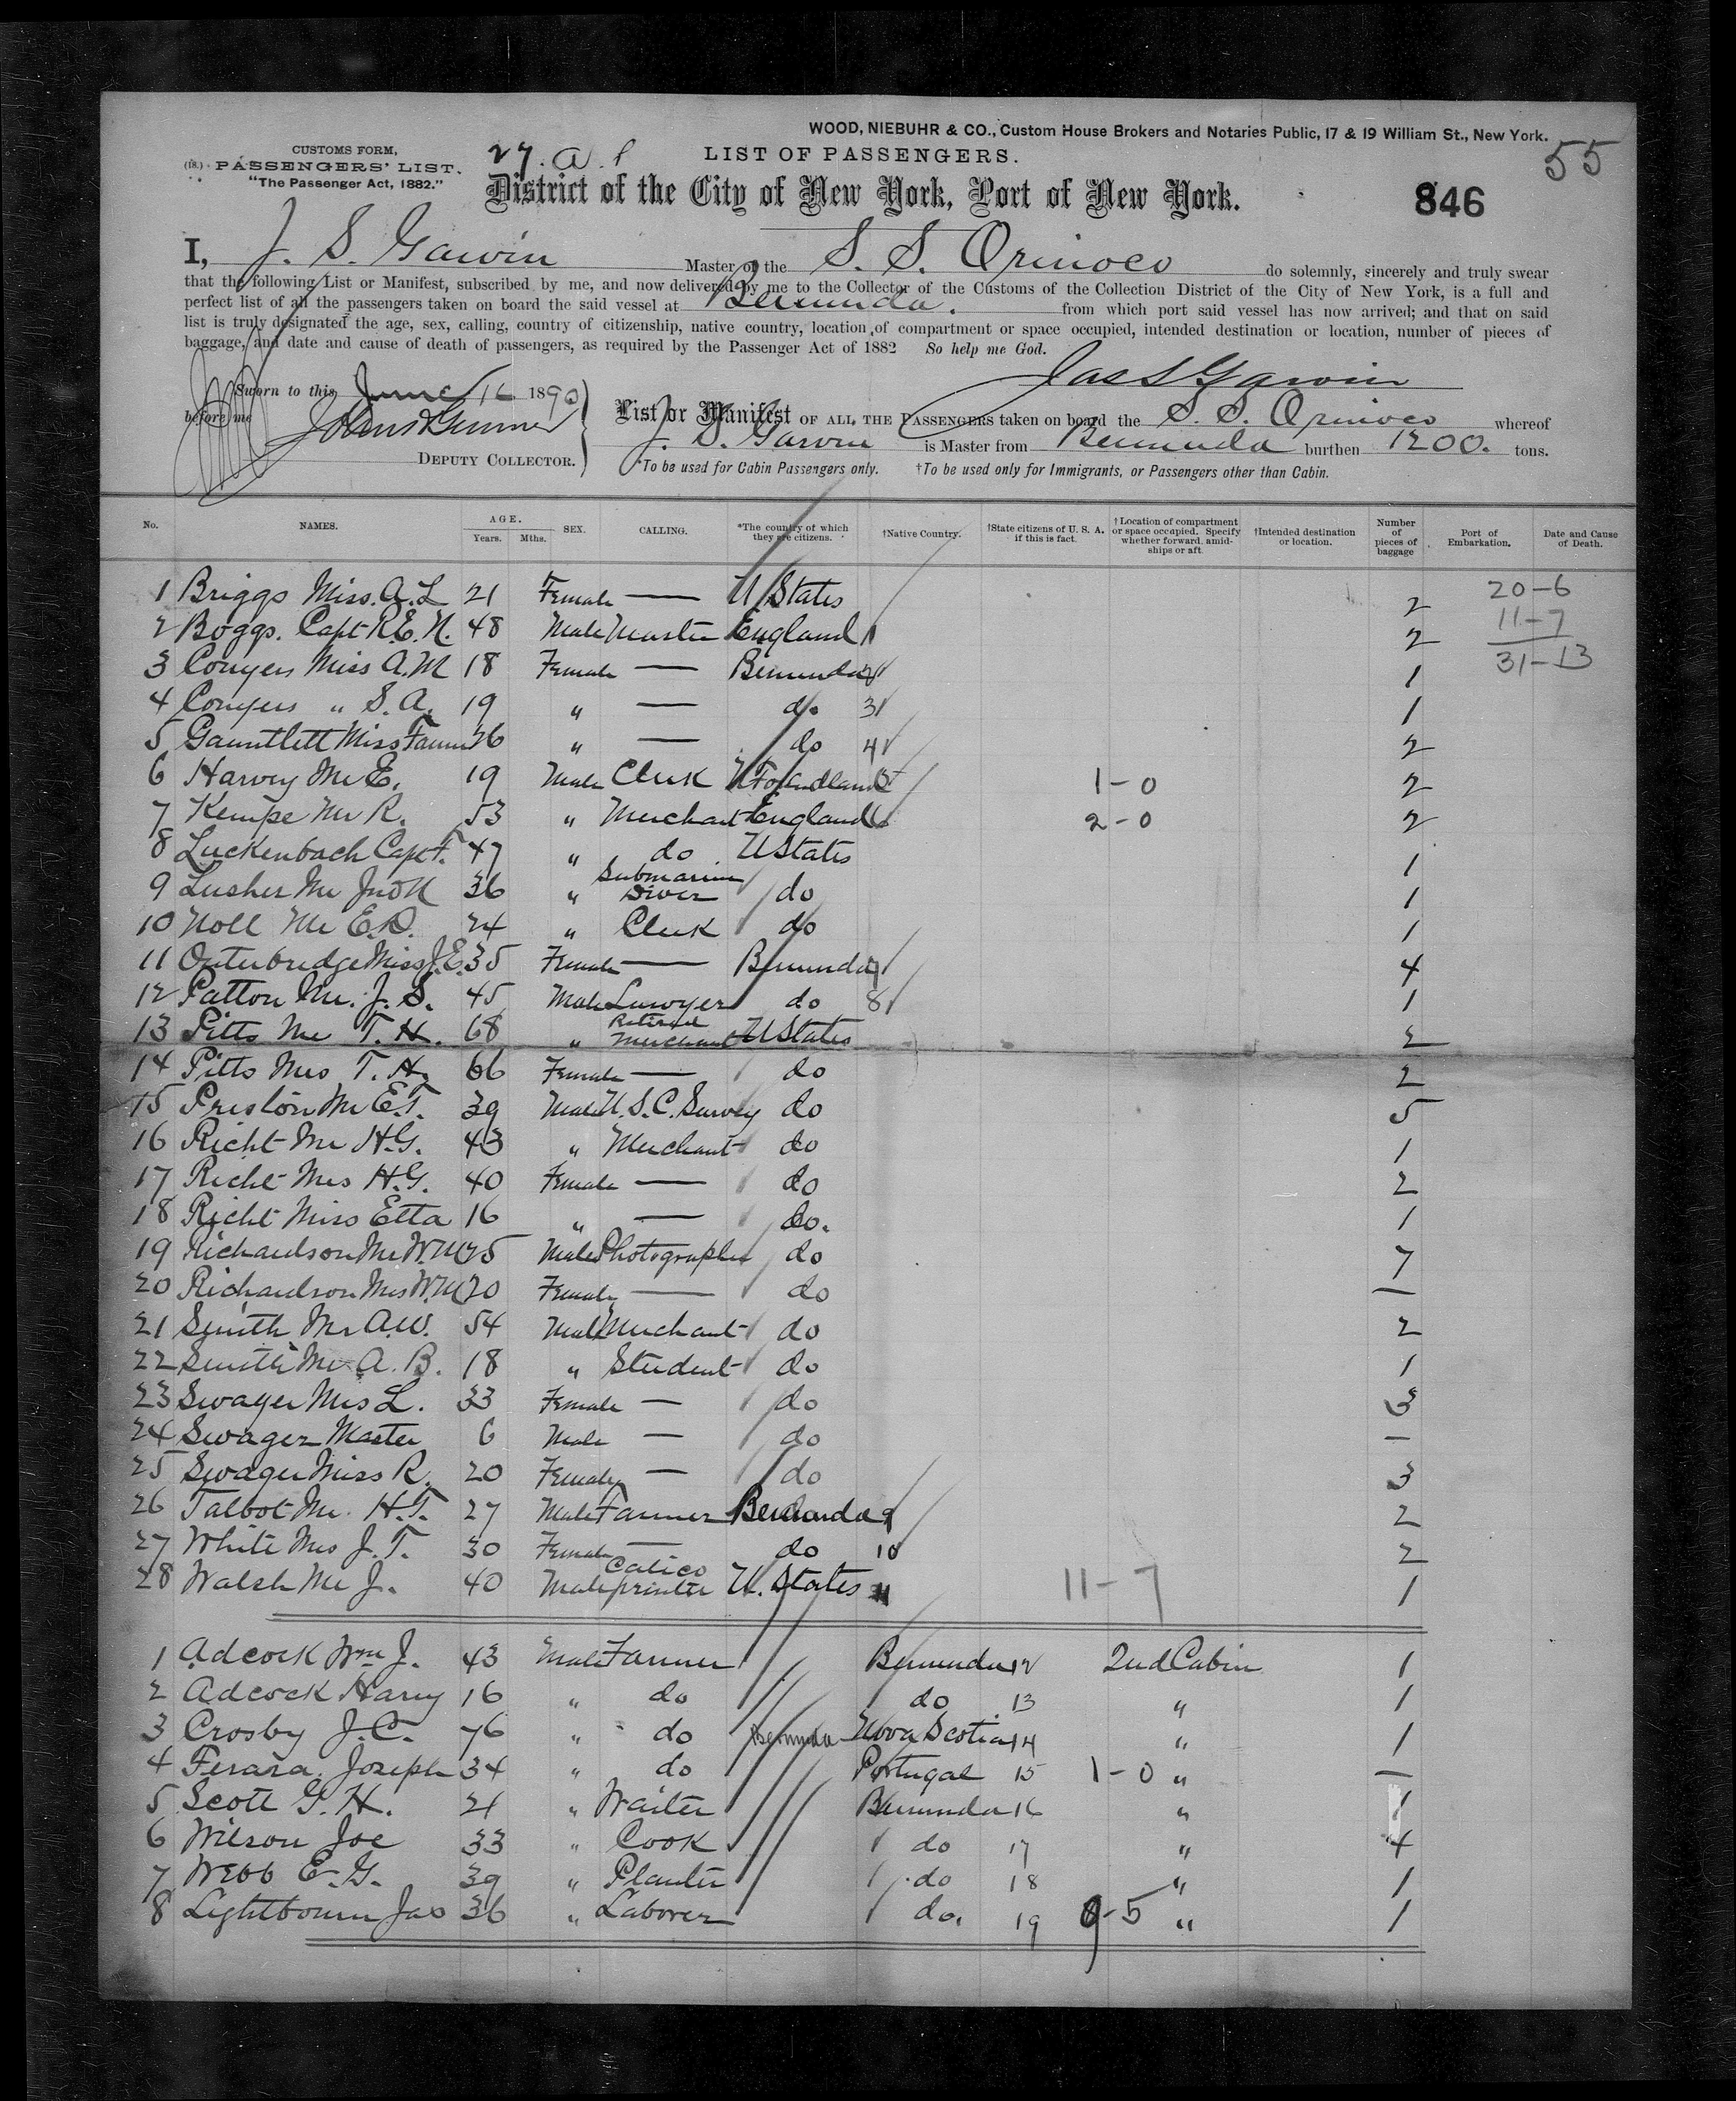 WOOD, NIEBUHR & CO., Custom House Brokers and Notaries Public, 17 & 19 William St., New York.
55
CUSTOMS FORM,
PASSENGERS' LIST.
"The Passenger Act, 1882."
27. a.
LIST OF PASSENGERS.
District of the City of New York, Port of New York.
846
I, J. S. Garvin Master of the S. S. Orinoco do solemnly, sincerely and truly swear
that the following List or Manifest, subscribed by me, and now delivered by me to the Collector of the Customs of the Collection District of the City of New York, is a full and
perfect list of all the passengers taken on board the said vessel at Bermuda. from which port said vessel has now arrived; and that on said
list is truly designated the age, sex, calling, country of citizenship, native country, location of compartment or space occupied, intended destination or location, number of pieces of
baggage, and date and cause of death of passengers, as required by the Passenger Act of 1882 So help me God.
Jas S Garvin
Sworn to this June 16 1890
before me
DEPUTY COLLECTOR.
List or Manifest OF ALL THE PASSENGERS taken on board the S. S. Orinoco whereof
J. S. Garvin is Master from Bermuda burthen 1200. tons.
*To be used for Cabin Passengers only. †To be used only for Immigrants, or Passengers other than Cabin.
No. NAMES. AGE. Years. Mths. SEX. CALLING. *The country of which they are citizens. †Native Country. †State citizens of U. S. A. if this is fact. †Location of compartment or space occupied. Specify whether forward, amidships or aft. †Intended destination or location. Number of pieces of baggage Port of Embarkation. Date and Cause of Death.
1 Briggs Miss. A. L 21 Female — U States 2 20-6
2 Boggs. Capt R. E. N. 48 Male Master England 1 2 11-7
3 Conyers Miss A. M 18 Female — Bermuda 2 1 31-13
4 Conyers " S. A. 19 " — do 3 1
5 Gauntlett Miss Fanny 26 " — do 4 2
6 Harvey Mr E. 19 Male Clerk NFoundland 5 1-0 2
7 Kempe Mr R. 53 " Merchant England 6 2-0 2
8 Luckenbach Capt F. 47 " do U States 1
9 Lusher Mr Jno N 36 " Submarine Diver do 1
10 Noll Mr E. D. 24 " Clerk do 1
11 Outerbridge Miss J. E. 35 Female — Bermuda 7 4
12 Patton Mr. J. S. 45 Male Lawyer do 8 1
13 Pitts Mr T. H. 68 " Retired Merchant U States 2
14 Pitts Mrs T. H. 66 Female — do 2
15 Preston Mr E. T. 39 Male U. S. C. Survey do 5
16 Richt Mr H. G. 43 " Merchant do 1
17 Richt Mrs H. G. 40 Female — do 2
18 Richt Miss Etta 16 " — do. 1
19 Richardson Mr W. M 25 Male Photographer do 7
20 Richardson Mrs W. M 20 Female — do —
21 Smith Mr A. W. 54 Male Merchant do 2
22 Smith Mr A. B. 18 " Student do 1
23 Swager Mrs L. 33 Female — do 3
24 Swager Master 6 Male — do —
25 Swager Miss R. 20 Female — do 3
26 Talbot Mr. H. T. 27 Male Farmer Bermuda 9 2
27 White Mrs J. T. 30 Female — do 10 2
28 Walsh Mr J. 40 Male Calico printer U. States 11 11-7 1
1 Adcock Wm J. 43 Male Farmer Bermuda 12 2nd Cabin 1
2 Adcock Harry 16 " do do 13 " 1
3 Crosby J. C. 76 " do Bermuda Nova Scotia 14 " 1
4 Ferara. Joseph 34 " do Portugal 15 1-0 " —
5 Scott G. H. 21 " Waiter Bermuda 16 " 1
6 Wilson Joe 33 " Cook do 17 " 4
7 Webb E. G. 39 " Planter do 18 " 1
8 Lightbourn Jas 36 " Laborer do. 19 9-5 " 1